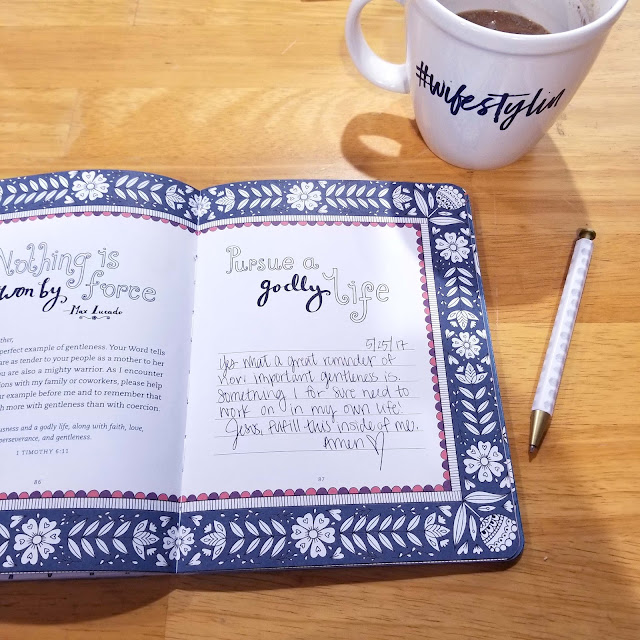 #wifestylin
Nothing is
won by force
—Max Lucado
perfect example of gentleness. Your Word tells
are as tender to your people as a mother to her
ou are also a mighty warrior. As I encounter
ions with my family or coworkers, please help
ur example before me and to remember that
h more with gentleness than with coercion.
ousness and a godly life, along with faith, love,
perseverance, and gentleness.
1 TIMOTHY 6:11
86
Pursue a
godly life
5/25/17
Yes what a great reminder of
how important gentleness is.
Something I for sure need to
work on in my own life!
Jesus, fulfill this inside of me.
Amen ♡
87